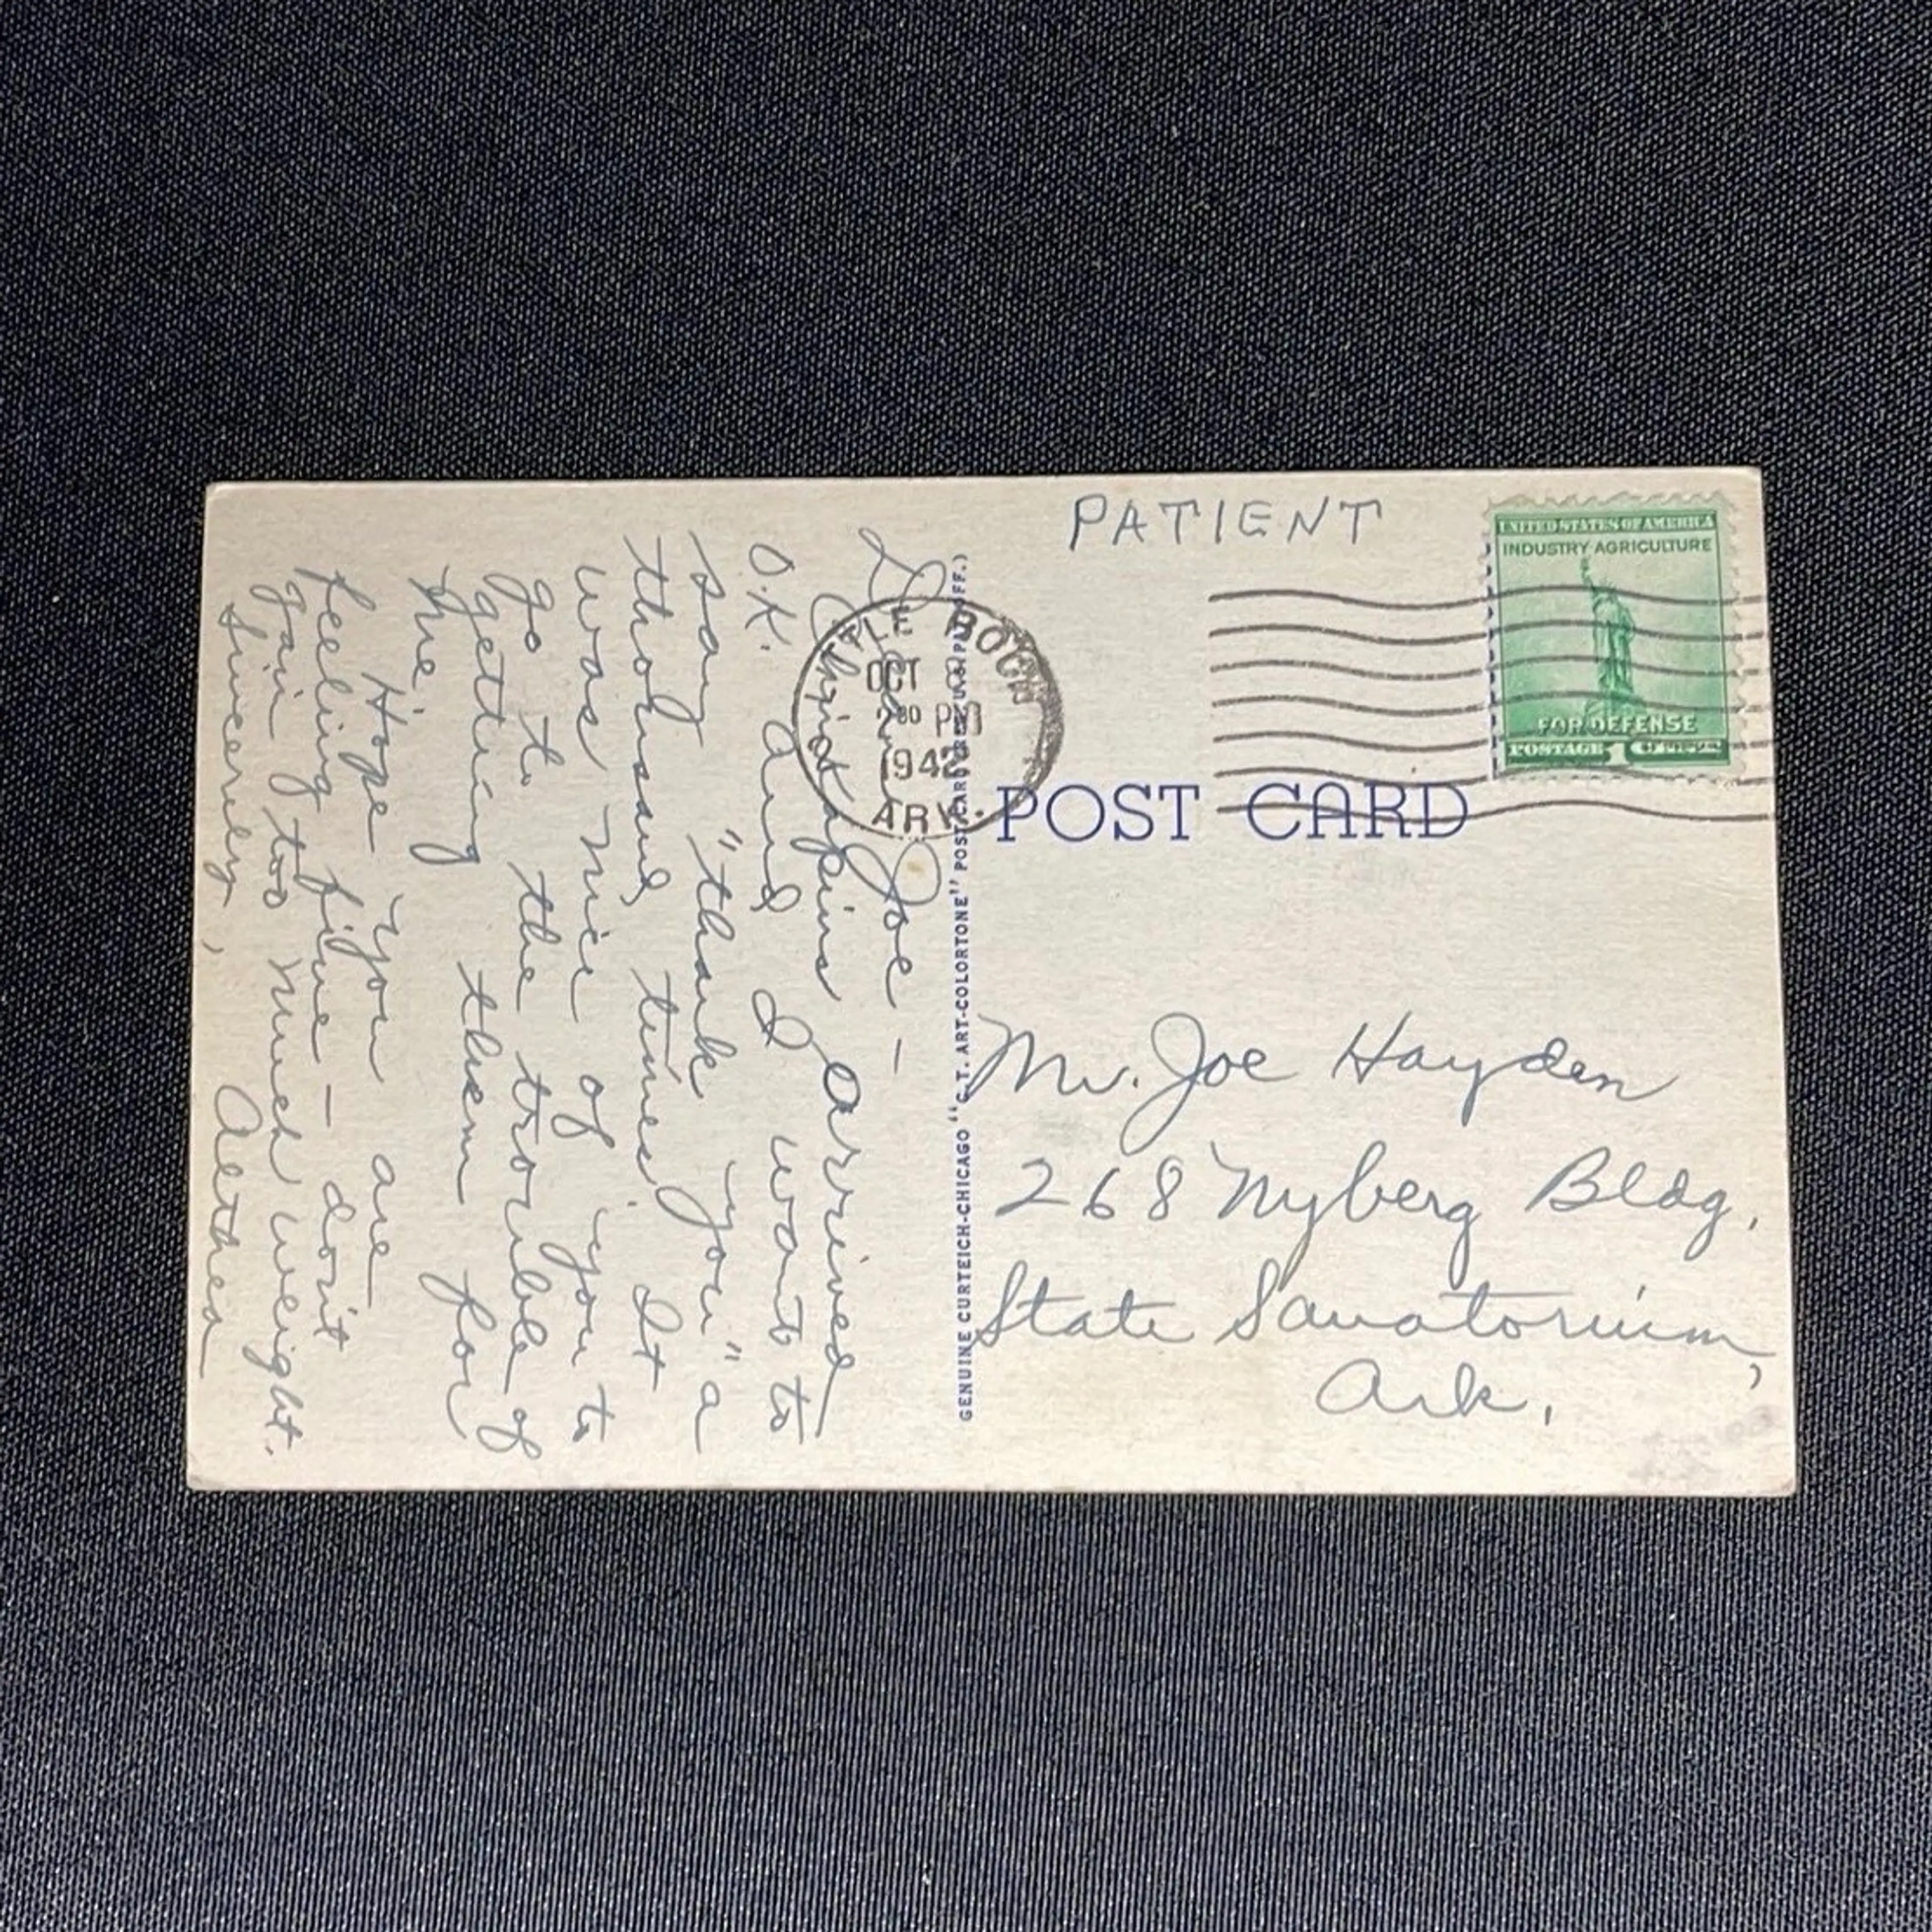 Dear Joe —
Chinquapins arrived
O.K. and I want to
say "thank you" a
thousand times. It
was nice of you to
go to the trouble of
getting them for
me.
Hope you are
feeling fine — don't
gain too much weight.
Sincerely,
Althea
TLE ROCK
OCT
2 30 PM
1942
ARK.
GENUINE CURTEICH-CHICAGO "C.T. ART-COLORTONE" POST CARD (REG. U.S. PAT. OFF.)
PATIENT
UNITED STATES OF AMERICA
INDUSTRY AGRICULTURE
FOR DEFENSE
POSTAGE 1 CENT
POST CARD
Mr. Joe Hayden
268 Nyberg Bldg.,
State Sanatorium,
Ark.